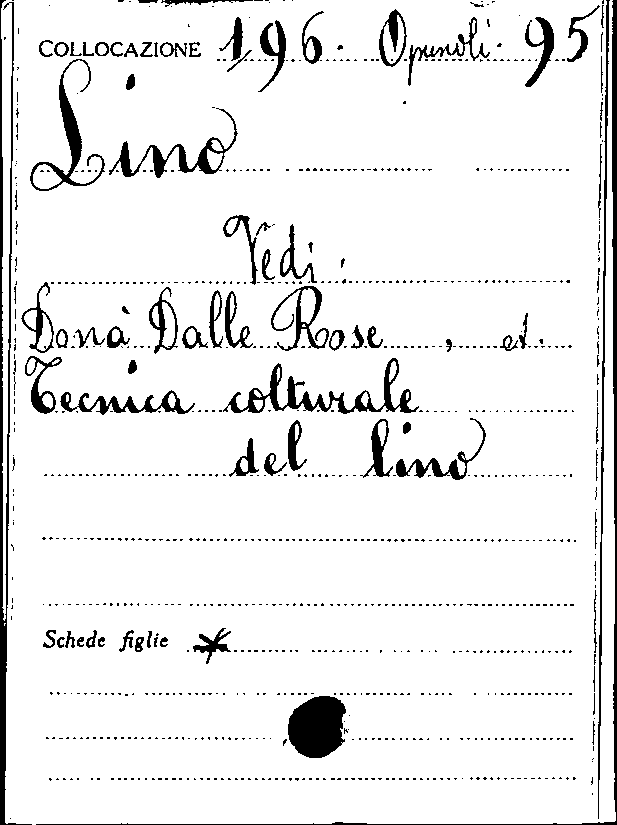 COLLOCAZIONE 196. Opuscoli. 95
Lino
Vedi:
Donà Dalle Rose, A.
Tecnica colturale
del lino
Schede figlie *